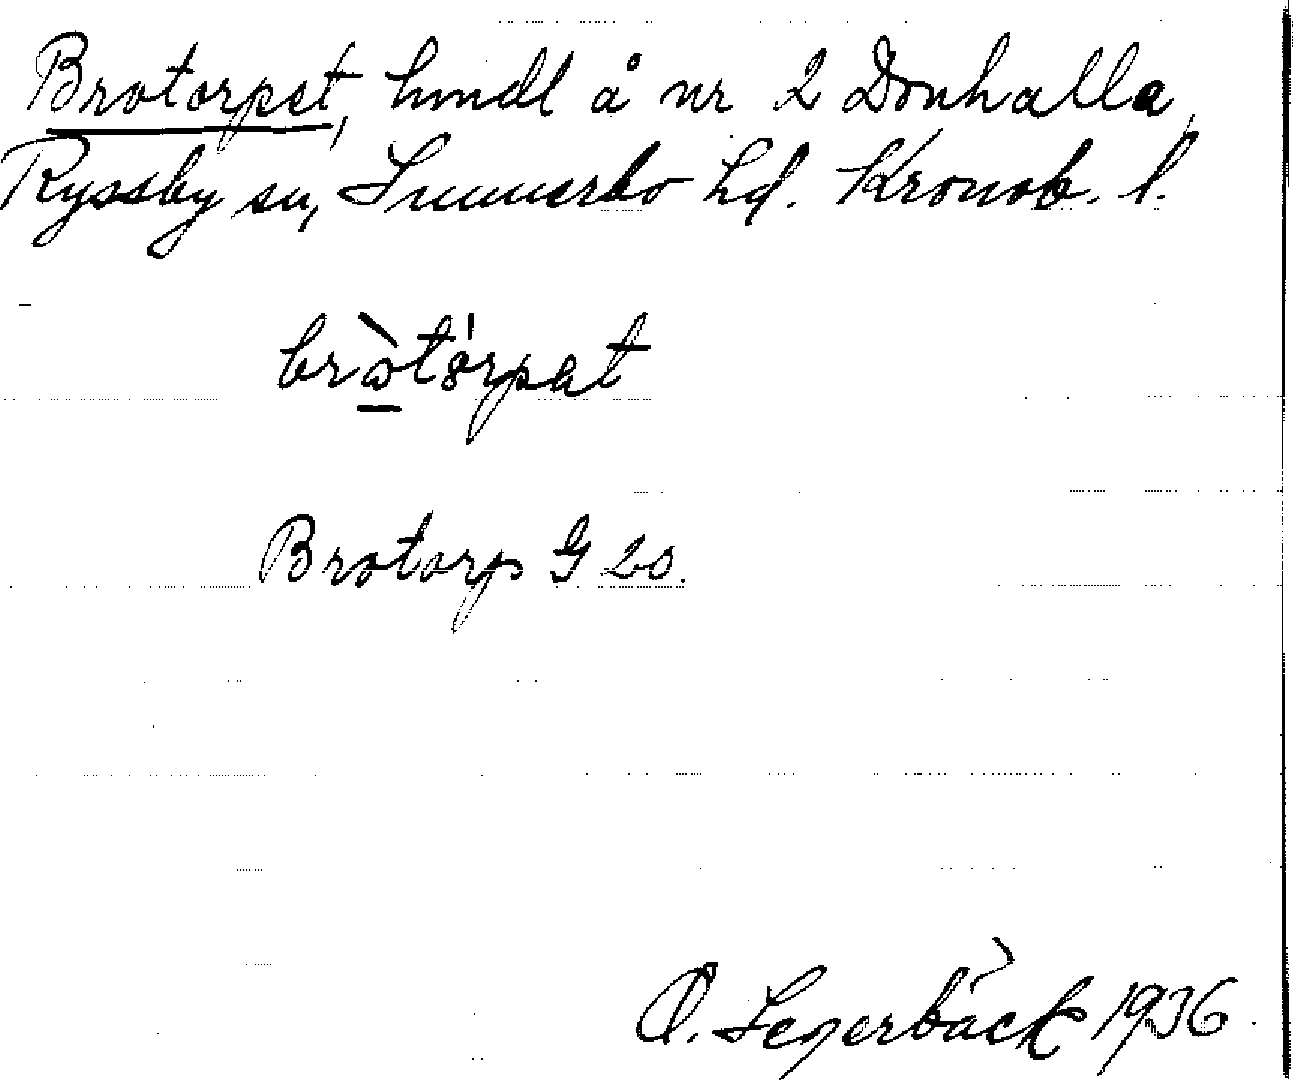 Brotorpet, hmdl å nr 2 Donhalla,
Ryssby sn, Sunnerbo hd. Kronob. l.
bròtórpat
Brotorp G
O. Segerbäck 1936